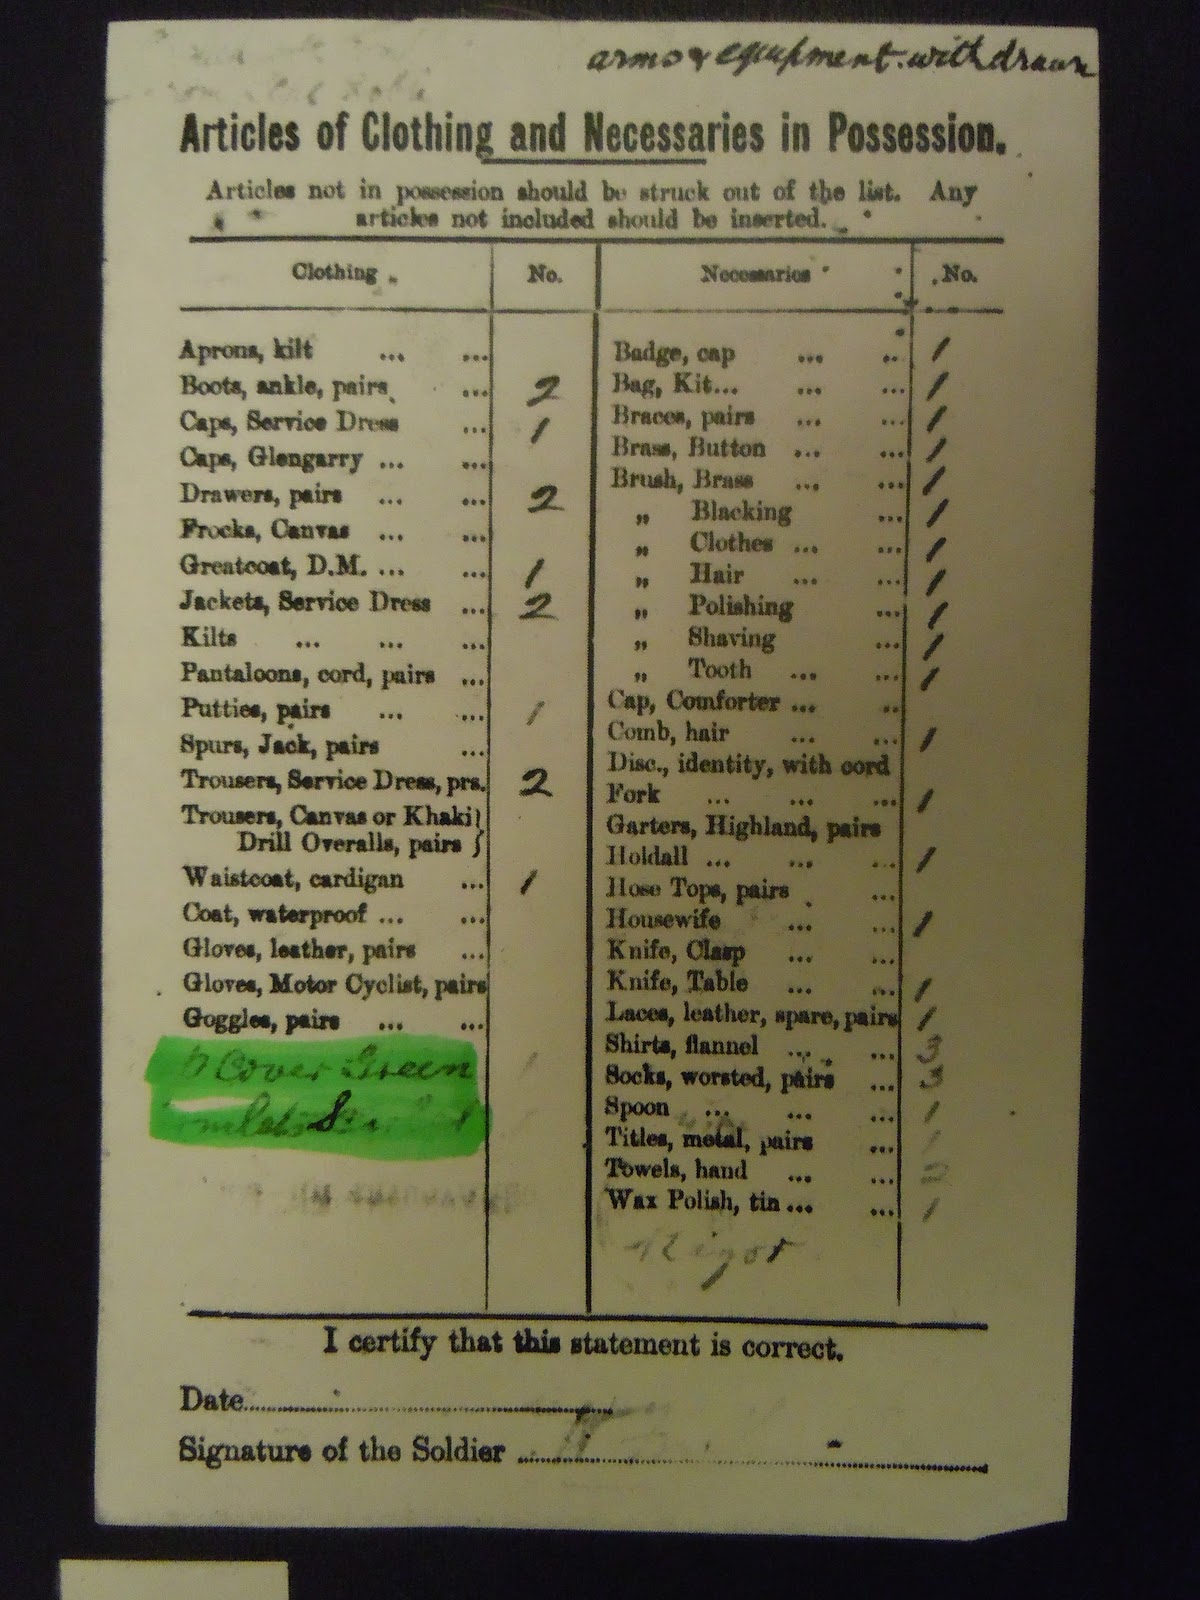 arms & equipment. withdrawn
Articles of Clothing and Necessaries in Possession.
Articles not in possession should be struck out of the list. Any
articles not included should be inserted.
Clothing No. Necessaries No.
Aprons, kilt ... ... Badge, cap ... .. 1
Boots, ankle, pairs ... 2 Bag, Kit... ... ... 1
Caps, Service Dress ... 1 Braces, pairs ... ... 1
Caps, Glengarry ... ... Brass, Button ... ... 1
Drawers, pairs ... ... 2 Brush, Brass ... ... 1
Frocks, Canvas ... ... „ Blacking ... 1
Greatcoat, D.M. ... ... 1 „ Clothes ... ... 1
Jackets, Service Dress ... 2 „ Hair ... ... 1
Kilts ... ... ... „ Polishing ... 1
Pantaloons, cord, pairs ... „ Shaving ... 1
Putties, pairs ... ... 1 „ Tooth ... ... 1
Spurs, Jack, pairs ... Cap, Comforter ... ..
Trousers, Service Dress, prs. 2 Comb, hair ... ... 1
Trousers, Canvas or Khaki } Disc., identity, with cord
Drill Overalls, pairs } Fork ... ... ... 1
Waistcoat, cardigan ... 1 Garters, Highland, pairs
Coat, waterproof ... ... Holdall ... ... ... 1
Gloves, leather, pairs ... Hose Tops, pairs ...
Gloves, Motor Cyclist, pairs Housewife ... ... 1
Goggles, pairs ... ... Knife, Clasp ... ...
Cover Green 1 Knife, Table ... ... 1
Laces, leather, spare, pairs 1
Shirts, flannel ... ... 3
Socks, worsted, pairs ... 3
Spoon ... ... ... 1
Titles, metal, pairs ... 1
Towels, hand ... ... 2
Wax Polish, tin ... ... 1
I certify that this statement is correct.
Date
Signature of the Soldier